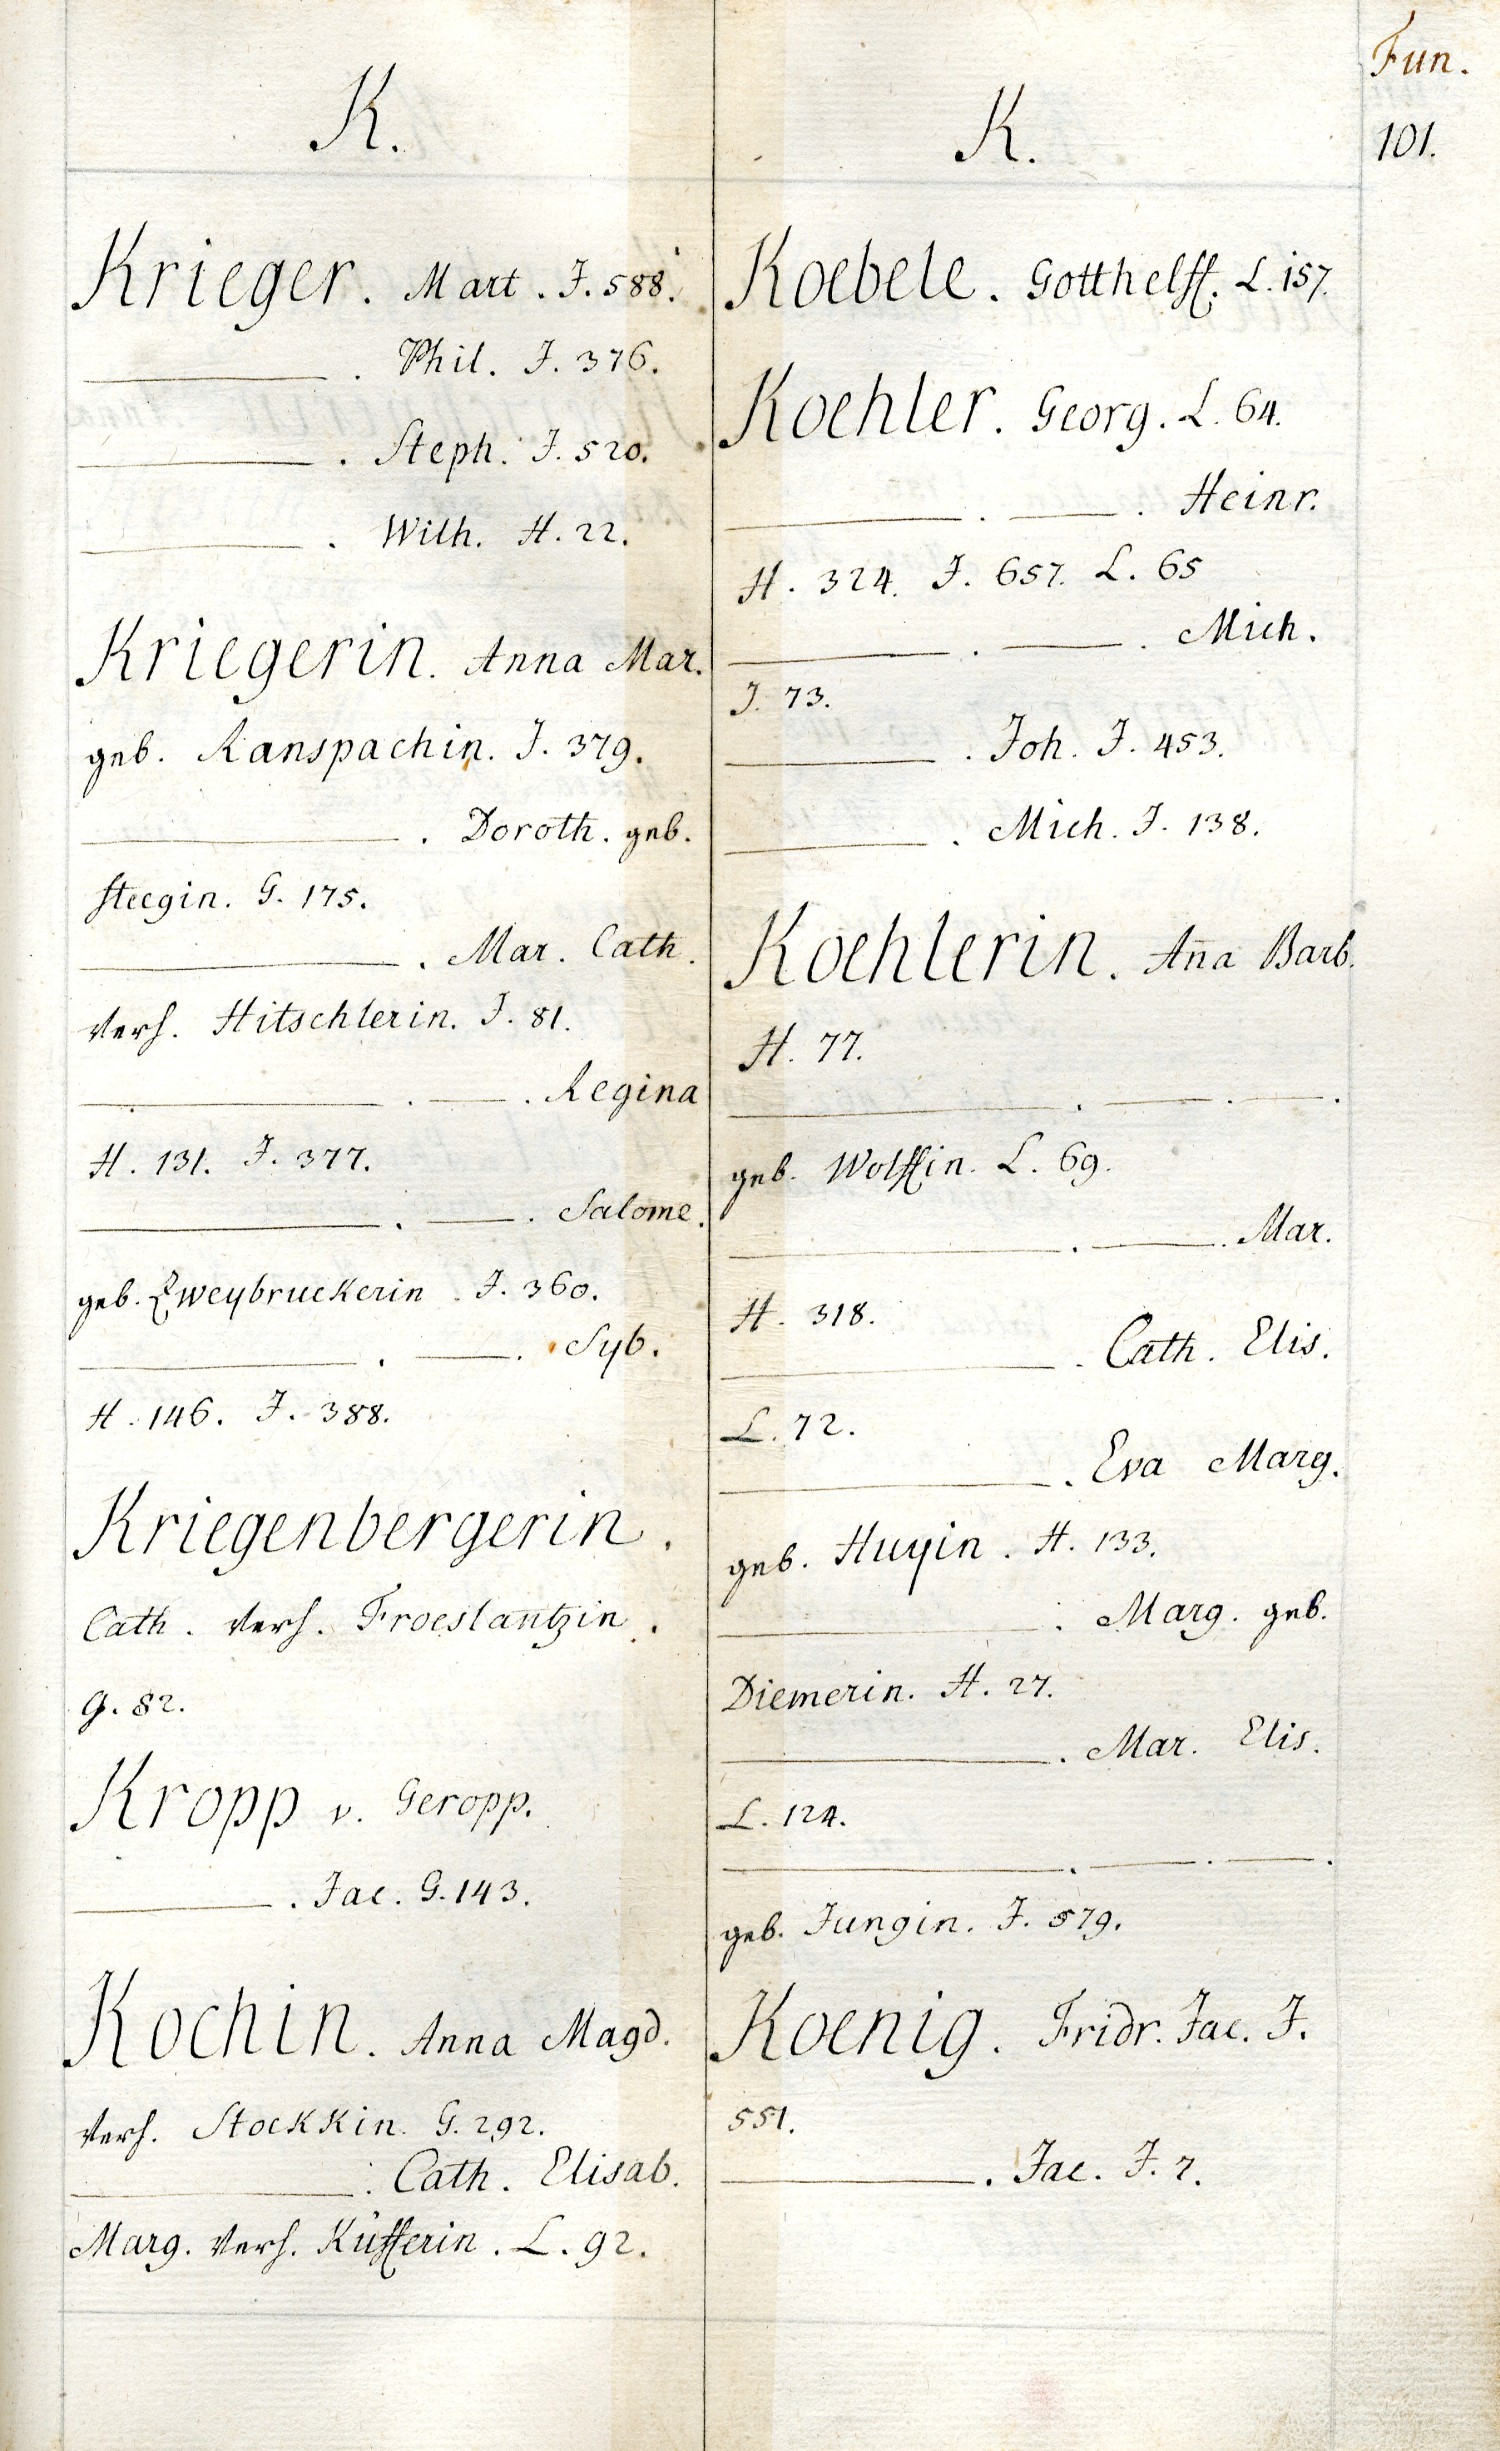 Fun.
101.
K.
Krieger. Mart. J. 588.
———. Phil. J. 376.
———. Steph. J. 520.
———. Wilh. H. 22.
Kriegerin. Anna Mar.
geb. Ranspachin. J. 379.
———. Doroth. geb.
Steegin. G. 175.
———. Mar. Cath.
verh. Hitschlerin. J. 81.
———. ——. Regina
H. 131. J. 377.
———. ——. Salome.
geb. Zweybruckerin. J. 360.
———. ——. Syb.
H. 146. J. 388.
Kriegenbergerin.
Cath. verh. Froeslan̄tzin.
G. 82.
Kropp v. Geropp.
———. Jac. G. 143.
Kochin. Anna Magd.
verh. Stockkin. G. 292.
———. Cath. Elisab.
Marg. verh. Küfferin. L. 92.
K.
Koebele. Gotthelff. L. 157.
Koehler. Georg. L. 64.
———. ——. Heinr.
H. 324. J. 657. L. 65
———. ——. Mich.
J. 73.
———. Joh. J. 453.
———. Mich. J. 138.
Koehlerin. An̄a Barb.
H. 77.
———. ——. ——.
geb. Wolffin. L. 69.
———. ——. Mar.
H. 318.
———. Cath. Elis.
L. 72.
———. Eva Marg.
geb. Huyin. H. 133.
———. Marg. geb.
Diemerin. H. 27.
———. Mar. Elis.
L. 124.
———. ——. ——.
geb. Jungin. J. 579.
Koenig. Fridr. Jac. J.
551.
———. Jac. J. 7.